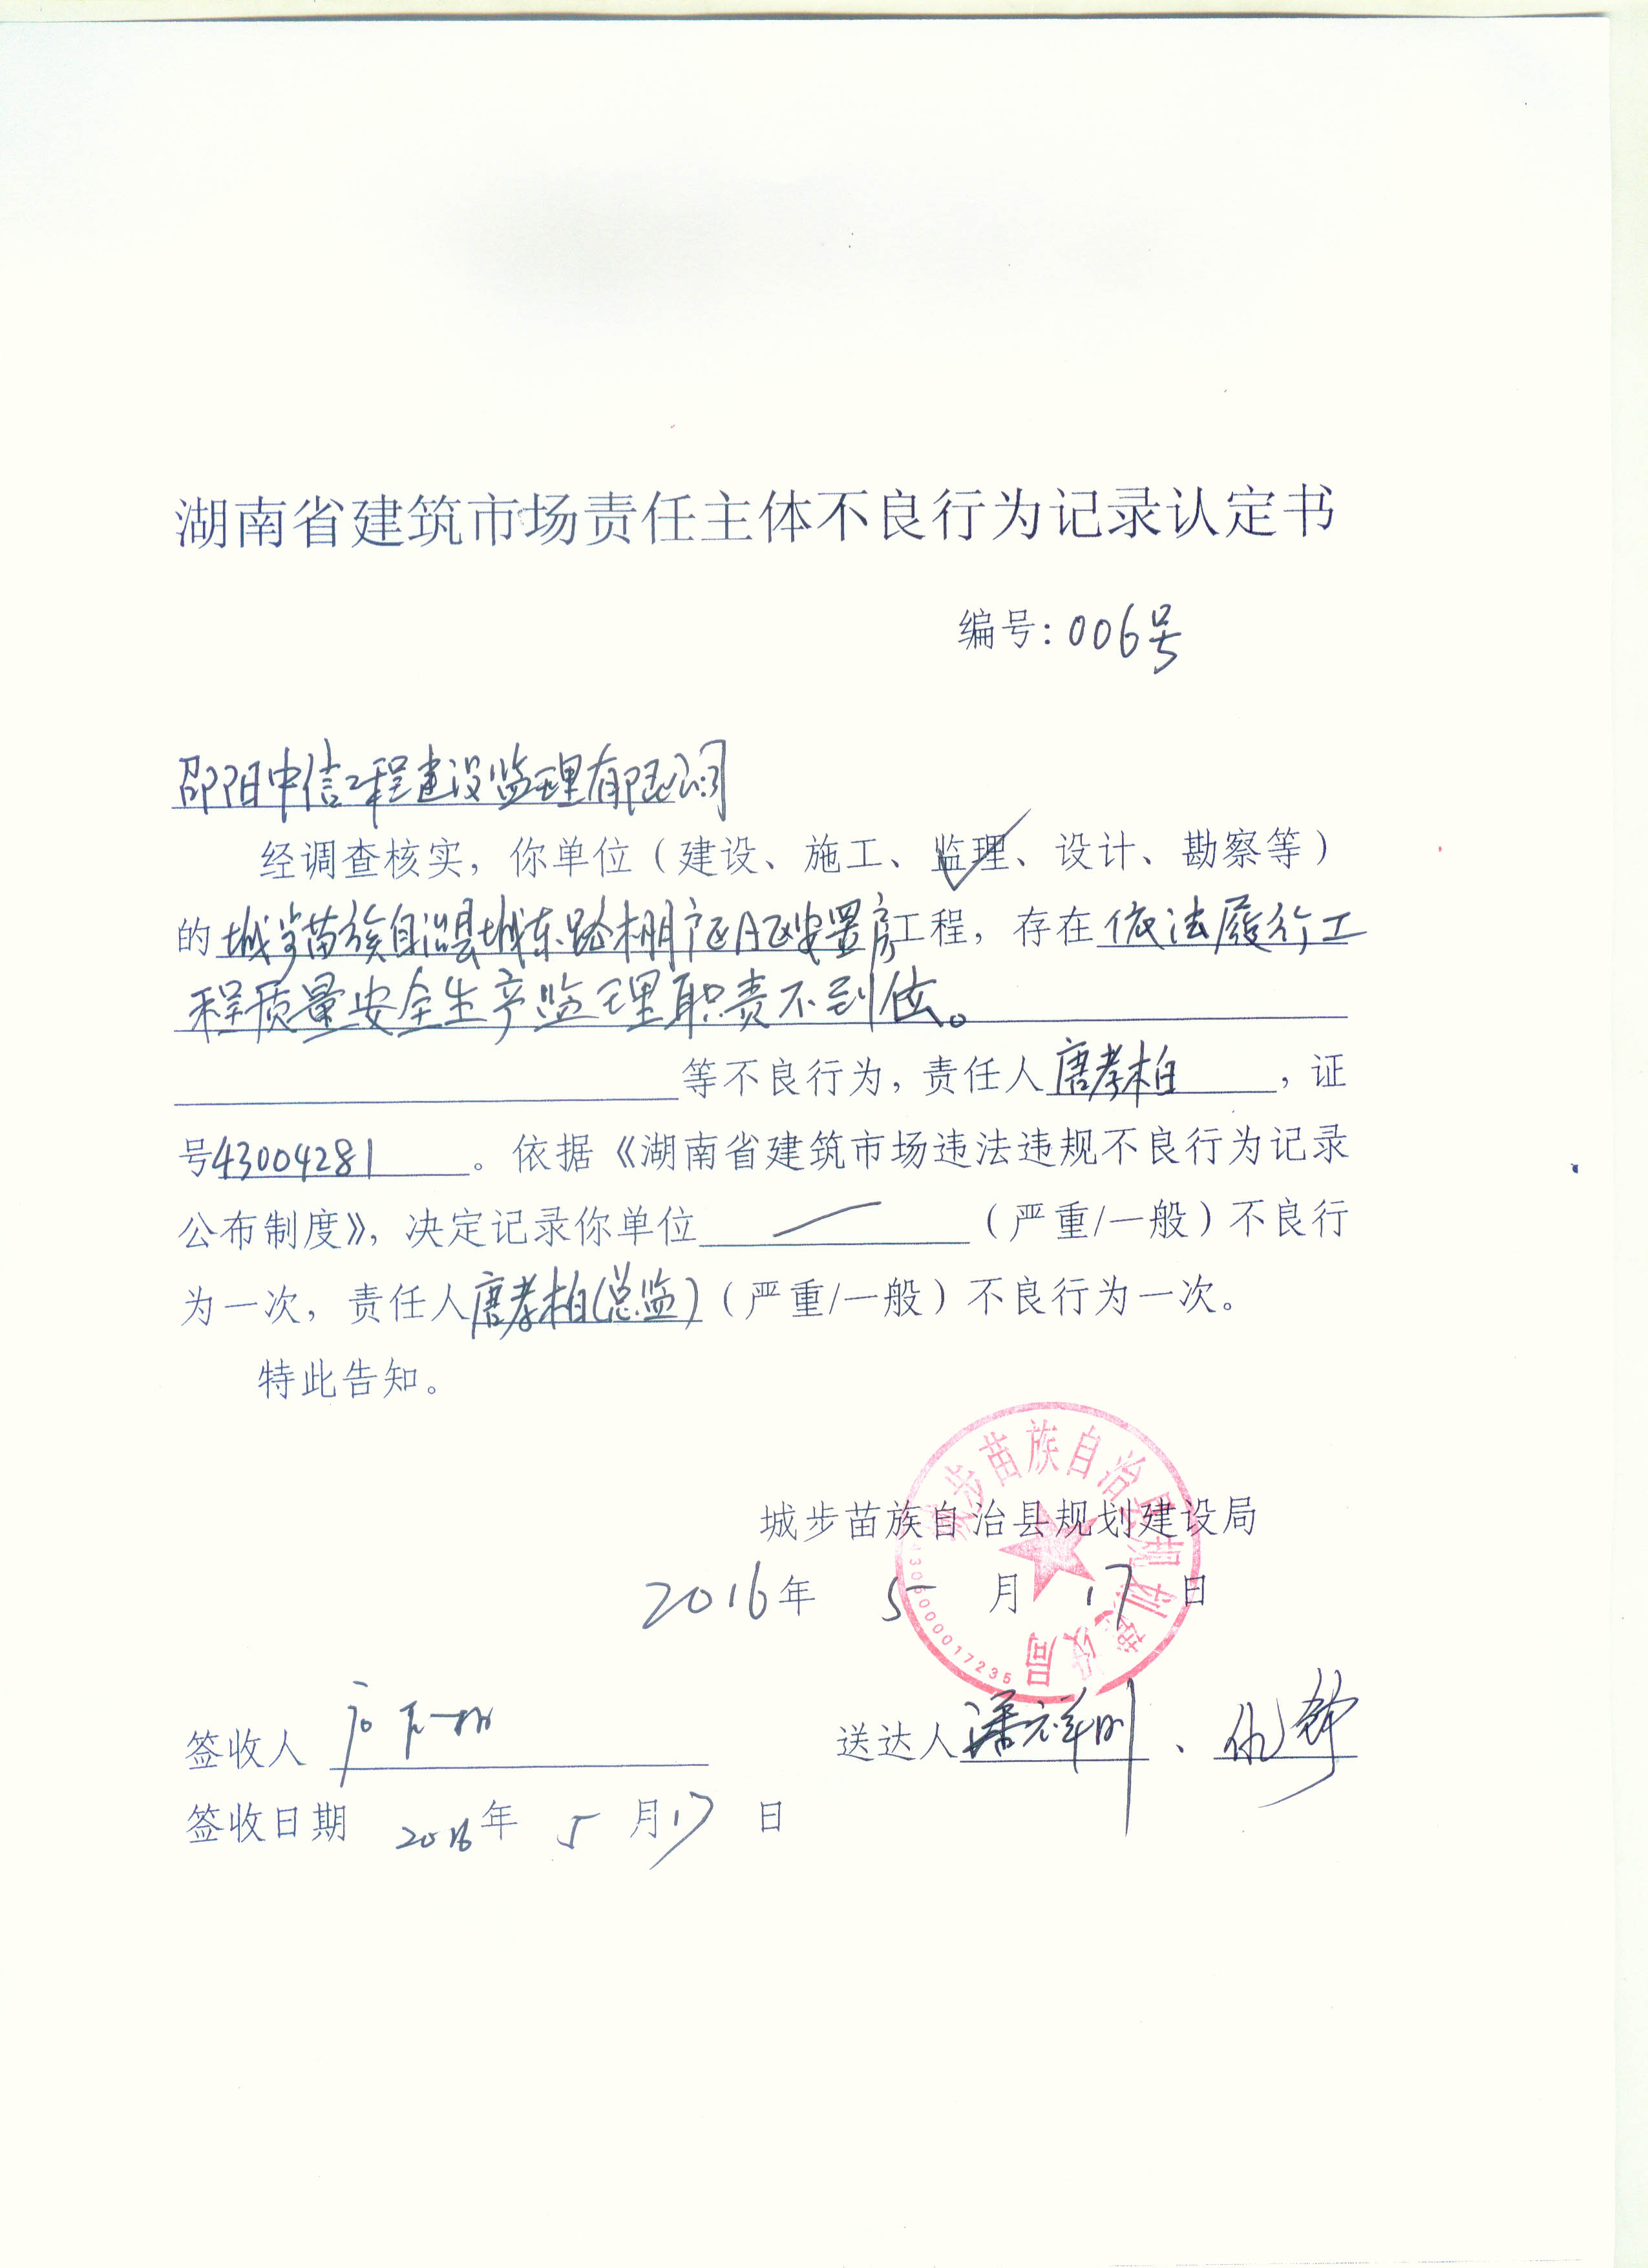 湖南省建筑市场责任主体不良行为记录认定书
编号：006号
邵阳中信工程建设监理有限公司
经调查核实，你单位（建设、施工、监理、设计、勘察等）
的城步苗族自治县城东路棚户区A区安置房工程，存在依法履行工
程质量安全生产监理职责不到位。
等不良行为，责任人唐孝柏，证
号43004281。依据《湖南省建筑市场违法违规不良行为记录
公布制度》，决定记录你单位（严重/一般）不良行
为一次，责任人唐孝柏（总监）（严重/一般）不良行为一次。
特此告知。
城步苗族自治县规划建设局
2016年 5月 17日
城步苗族自治县规划建设局
签收人 送达人
签收日期 2016年 5月17日